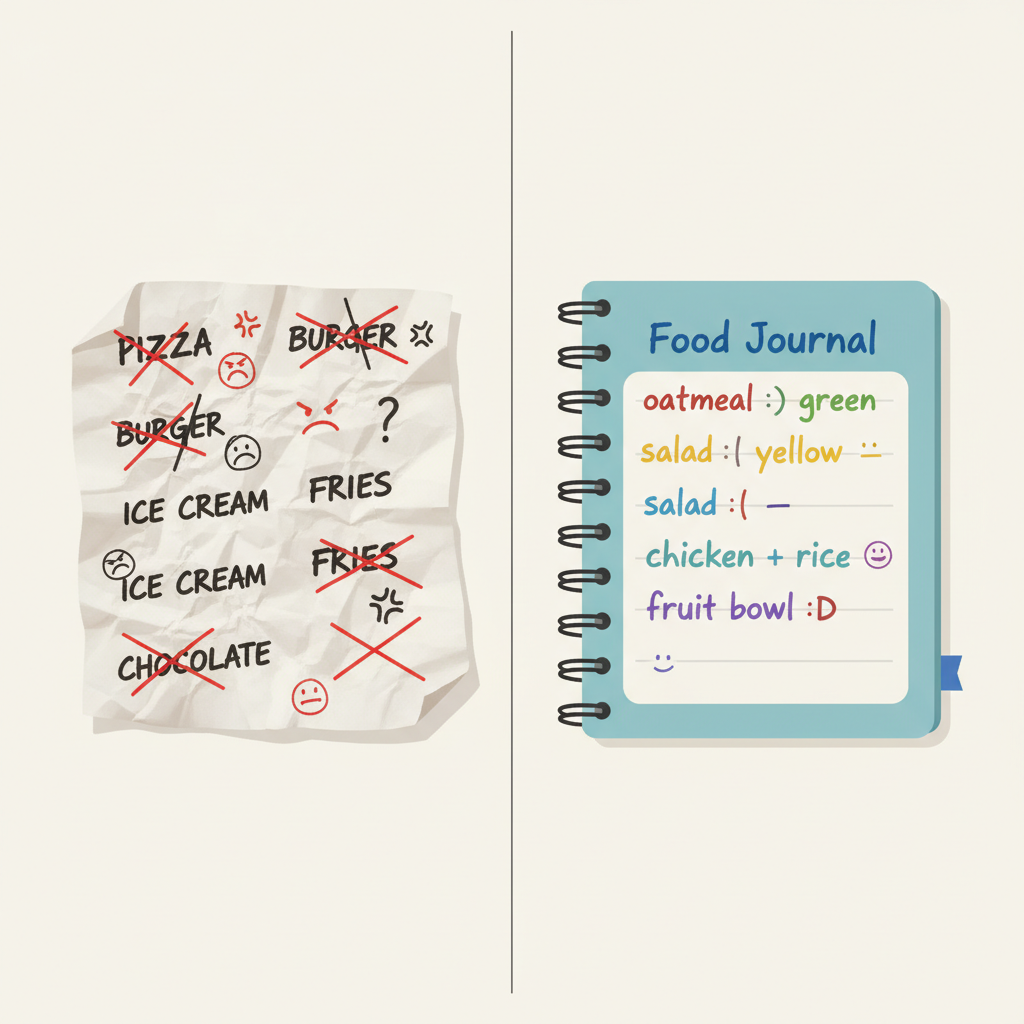 PIZZA
BURGER
BURGER
?
ICE CREAM
FRIES
ICE CREAM
FRIES
CHOCOLATE
Food Journal
oatmeal :) green
salad :( yellow :-
salad :( —
chicken + rice
fruit bowl :D